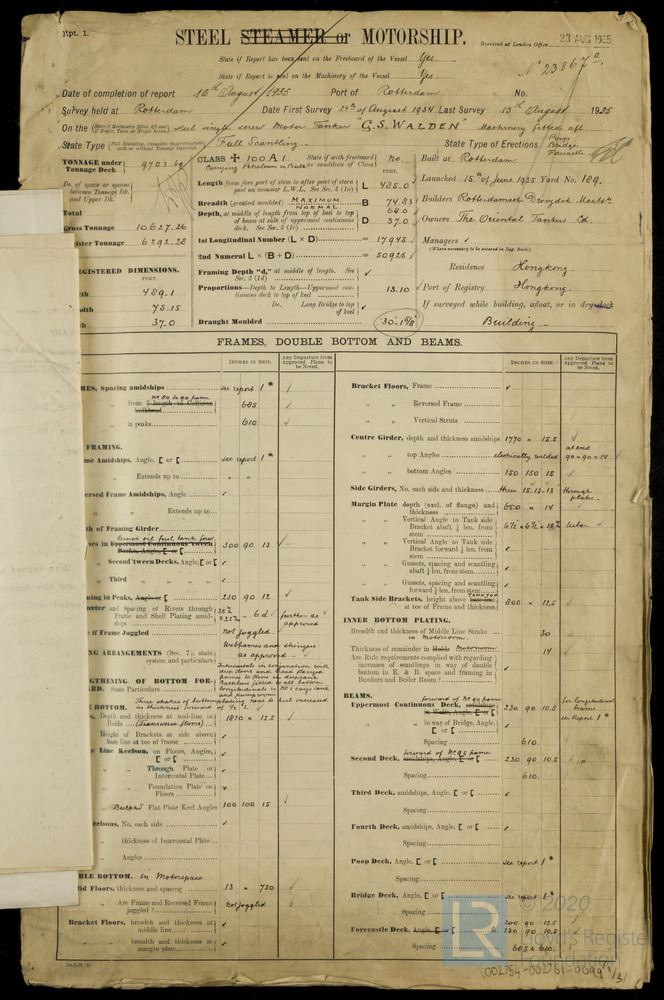 Rpt. 1.
STEEL STEAMER or MOTORSHIP.
Received at London Office
23 AUG 1935
State if Report has been sent on the Freeboard of the Vessel Yes
State if Report is sent on the Machinery of the Vessel Yes
No 23867a
Date of completion of report 16th August 1935 Port of Rotterdam No.
Survey held at Rotterdam Date First Survey 24th of August 1934 Last Survey 13th August 1935
On the steel single screw Motor Tanker "C.S. WALDEN" Machinery fitted aft
State Type Full Scantling State Type of Erections Poop Bridge Forecastle
TONNAGE under Tonnage Deck 9703.69
Total
Gross Tonnage 10627.26
Register Tonnage 6292.28
REGISTERED DIMENSIONS.
FEET.
489.1
75.15
37.0
CLASS ✠ 100A1. State if with freeboard as condition of Class No.
Carrying Petroleum in Bulk
Length from fore part of stem to after part of stern post on summer L.W.L. See Sec. 3 (1a) L 485.0
Breadth (greatest moulded) B 74.83
MAXIMUM NORMAL
Depth, at middle of length from top of keel to top of beam at side of uppermost continuous deck. See Sec. 3 (1c) D 37.0
1st Longitudinal Number (L × D) = 17945
2nd Numeral L × (B + D) = 50925
Framing Depth "d," at middle of length. See Sec. 3 (1d)
Proportions—Depth to Length—Uppermost continuous deck to top of keel 13.10
Do. Long Bridge to top of keel
Draught Moulded 30'-1 5/8"
Built at Rotterdam
Launched 15th of June 1935 Yard No. 189.
Builders Rotterdamsch Droogdok Maatsch
Owners The Oriental Tankers Ld.
Managers
(Where necessary to be entered in Reg. Book)
Residence Hongkong.
Port of Registry Hongkong.
If surveyed while building, afloat, or in dry dock
Building
FRAMES, DOUBLE BOTTOM AND BEAMS.
INCHES IN SHIP.
Any Departure from Approved Plans to be Noted.
INCHES IN SHIP.
Any Departure from Approved Plans to be Noted.
Spacing amidships see report 1*
685
in peaks 610
FRAMING.
Frame Amidships, Angle, [ or [ see report 1*
Extends up to
Reversed Frame Amidships, Angle
Extends up to
Depth of Framing Girder
300 90 13
Second 'tween Decks, Angle, [ or [
Third
Framing in Peaks, Angle or [ 230 90 12
Diameter and Spacing of Rivets through Frame and Shell Plating amidships 6d further as approved
State if Frame Joggled Not joggled
ARRANGEMENTS (Sec. 7), state system and particulars Webframes and stringers as approved
STRENGTHENING OF BOTTOM FORWARD. State Particulars
BOTTOM.
Depth and thickness at mid-line in Holds 1830 × 12.5
Height of Brackets at side above base line at toe of frame
Line Keelson, on Floors, Angles, [ or [
Through Plate or Intercostal Plate
Foundation Plate on Floors
Flat Plate Keel Angles 100 100 15
Keelsons, No. each side
thickness of Intercostal Plate
Angles
DOUBLE BOTTOM. in Motorspace
Solid Floors, thickness and spacing 13 × 750
Are Frame and Reversed Frame joggled? Not joggled
Bracket Floors, breadth and thickness at middle line
breadth and thickness at margin plate
Bracket Floors, Frame
Reversed Frame
Vertical Struts
Centre Girder, depth and thickness amidships 1770 × 15.5
top Angles electrically welded at end 90 × 90 × 14
bottom Angles 150 150 15
Side Girders, No. each side and thickness three 15.13-13 through plates
Margin Plate depth (excl. of flange) and thickness 650 × 14
Vertical Angle to Tank side Bracket abaft ¼ len. from stem
Vertical Angle to Tank side Bracket forward ¼ len. from stem
Gussets, spacing and scantling abaft ¼ len. from stem
Gussets, spacing and scantling forward ¼ len. from stem
Tank Side Brackets, height above at toe of Frame and thickness 800 × 12.5
INNER BOTTOM PLATING.
Breadth and thickness of Middle Line Strake in Motorroom 30
Thickness of remainder in Holds Motorroom 14
Are Rule requirements complied with regarding increases of scantlings in way of double bottom in E. & B. space and framing in Bunkers and Boiler Room?
BEAMS. forward of No 90 frame
Uppermost Continuous Deck, 230 90 10.5 for longitudinal frame see Report 1*
in way of Bridge, Angle, [ or [
Spacing 610
Second Deck, amidships, Angle, [ or [ 230 90 10.5
Spacing 610
Third Deck, amidships, Angle, [ or [
Spacing
Fourth Deck, amidships, Angle, [ or [
Spacing
Poop Deck, Angle, [ or [ see report 1*
Spacing
Bridge Deck, Angle, [ or [ see report 1*
Spacing
Forecastle Deck, Angle, [ or [ 230 90 10.5
Spacing 685 & 610
LR
© 2020
Lloyd's Register
Foundation
002754-002761-0099 1/3